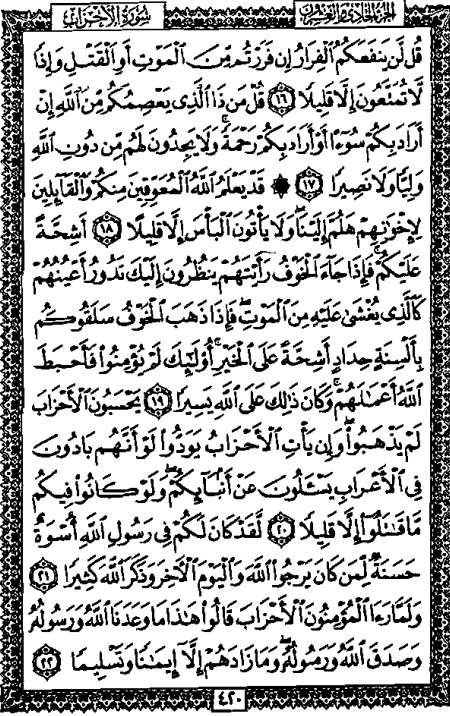 الجزء الحادي والعشرون
سورة الأحزاب
قُل لَّن يَنفَعَكُمُ ٱلْفِرَارُ إِن فَرَرْتُم مِّنَ ٱلْمَوْتِ أَوِ ٱلْقَتْلِ وَإِذًا
لَّا تُمَتَّعُونَ إِلَّا قَلِيلًا ١٦ قُلْ مَن ذَا ٱلَّذِى يَعْصِمُكُم مِّنَ ٱللَّهِ إِنْ
أَرَادَ بِكُمْ سُوٓءًا أَوْ أَرَادَ بِكُمْ رَحْمَةً ۚ وَلَا يَجِدُونَ لَهُم مِّن دُونِ ٱللَّهِ
وَلِيًّا وَلَا نَصِيرًا ١٧ ۞ قَدْ يَعْلَمُ ٱللَّهُ ٱلْمُعَوِّقِينَ مِنكُمْ وَٱلْقَآئِلِينَ
لِإِخْوَٰنِهِمْ هَلُمَّ إِلَيْنَا ۖ وَلَا يَأْتُونَ ٱلْبَأْسَ إِلَّا قَلِيلًا ١٨ أَشِحَّةً
عَلَيْكُمْ ۖ فَإِذَا جَآءَ ٱلْخَوْفُ رَأَيْتَهُمْ يَنظُرُونَ إِلَيْكَ تَدُورُ أَعْيُنُهُمْ
كَٱلَّذِى يُغْشَىٰ عَلَيْهِ مِنَ ٱلْمَوْتِ ۖ فَإِذَا ذَهَبَ ٱلْخَوْفُ سَلَقُوكُم
بِأَلْسِنَةٍ حِدَادٍ أَشِحَّةً عَلَى ٱلْخَيْرِ ۚ أُو۟لَٰٓئِكَ لَمْ يُؤْمِنُوا۟ فَأَحْبَطَ
ٱللَّهُ أَعْمَٰلَهُمْ ۚ وَكَانَ ذَٰلِكَ عَلَى ٱللَّهِ يَسِيرًا ١٩ يَحْسَبُونَ ٱلْأَحْزَابَ
لَمْ يَذْهَبُوا۟ ۖ وَإِن يَأْتِ ٱلْأَحْزَابُ يَوَدُّوا۟ لَوْ أَنَّهُم بَادُونَ
فِى ٱلْأَعْرَابِ يَسْـَٔلُونَ عَنْ أَنۢبَآئِكُمْ ۖ وَلَوْ كَانُوا۟ فِيكُم
مَّا قَٰتَلُوٓا۟ إِلَّا قَلِيلًا ٢٠ لَّقَدْ كَانَ لَكُمْ فِى رَسُولِ ٱللَّهِ أُسْوَةٌ
حَسَنَةٌ لِّمَن كَانَ يَرْجُوا۟ ٱللَّهَ وَٱلْيَوْمَ ٱلْءَاخِرَ وَذَكَرَ ٱللَّهَ كَثِيرًا ٢١
وَلَمَّا رَءَا ٱلْمُؤْمِنُونَ ٱلْأَحْزَابَ قَالُوا۟ هَٰذَا مَا وَعَدَنَا ٱللَّهُ وَرَسُولُهُۥ
وَصَدَقَ ٱللَّهُ وَرَسُولُهُۥ ۚ وَمَا زَادَهُمْ إِلَّآ إِيمَٰنًا وَتَسْلِيمًا ٢٢
٤٢٠